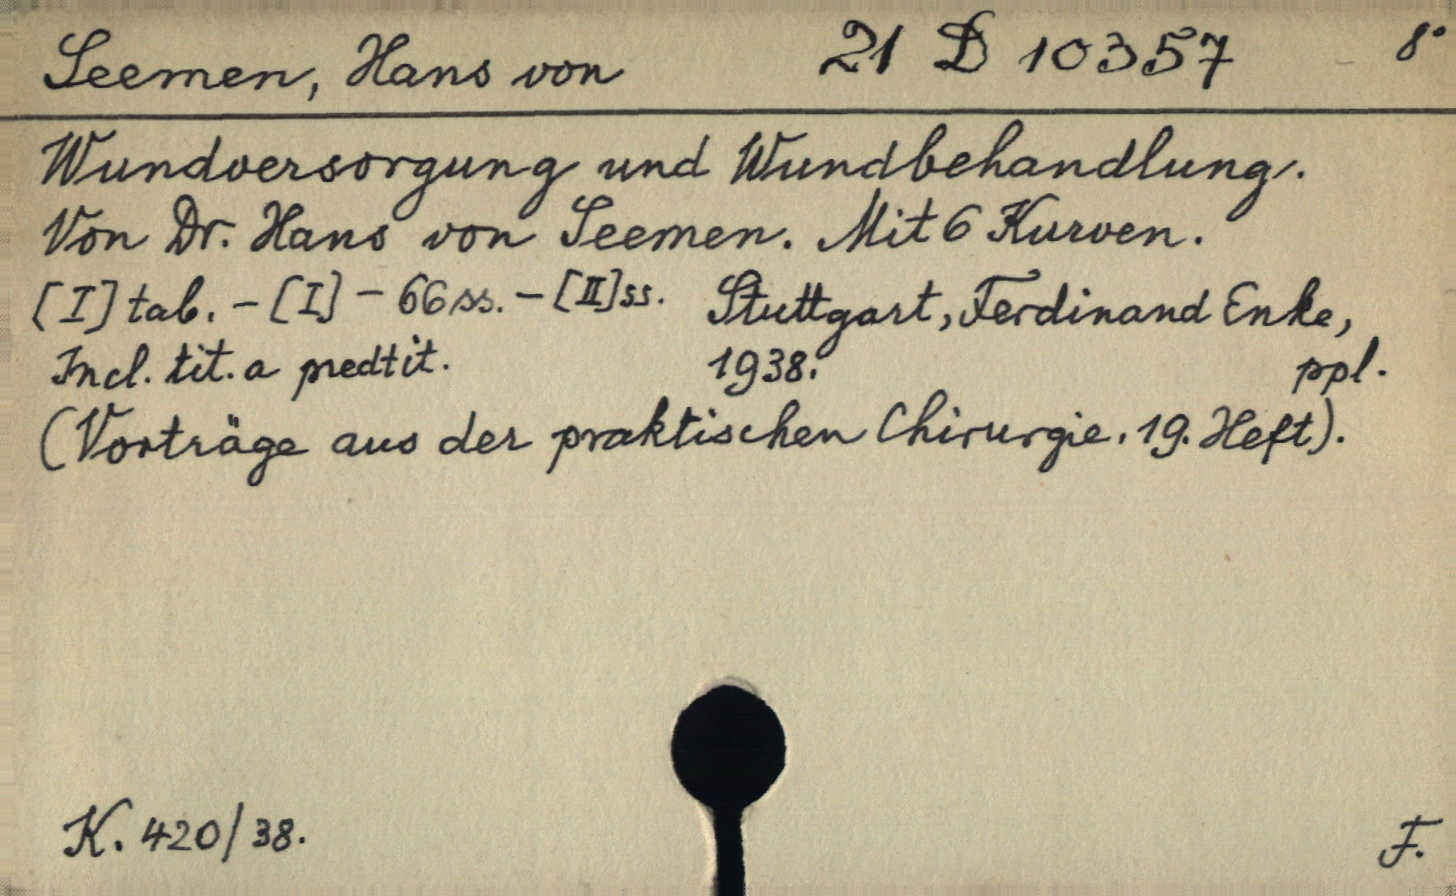 Seemen, Hans von 21 D 10357 8°
Wundversorgung und Wundbehandlung.
Von Dr. Hans von Seemen. Mit 6 Kurven.
[I] tab. - [I] - 66 ss. - [II] ss. Stuttgart, Ferdinand Enke,
Incl. tit. a predtit. 1938. ppl.
(Vorträge aus der praktischen Chirurgie. 19. Heft).
K. 420/38. F.